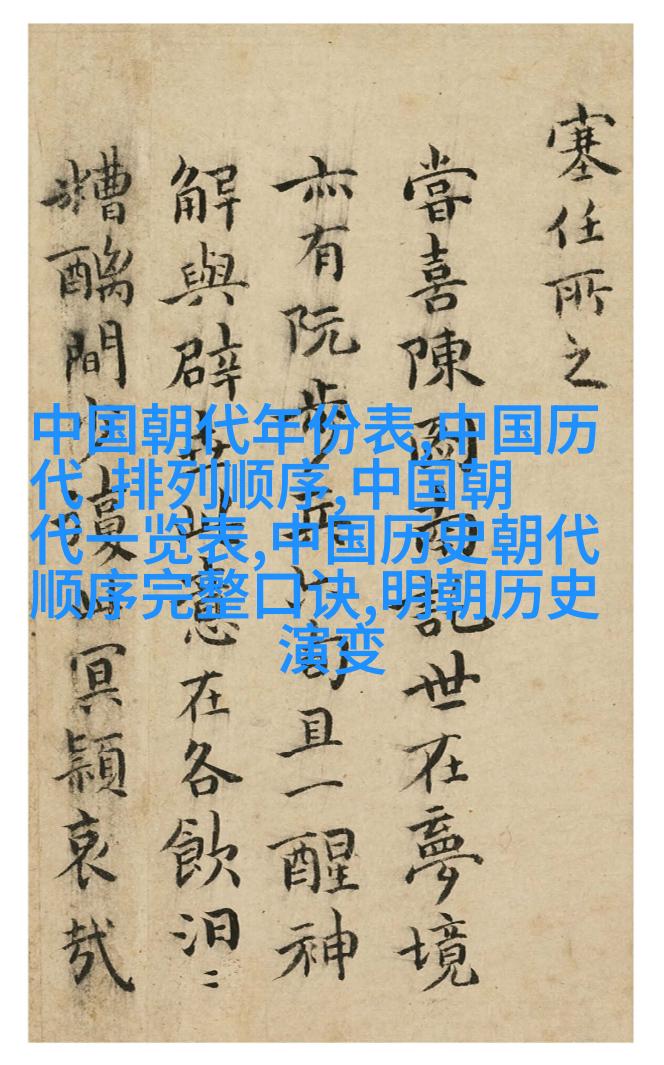 塞任所之
嘗喜陳圖南世在夢境
亦有阮步兵且一醒神
解與辟此在各飲汩〻
糟醨間冥穎哀哉
中国朝代年份表,中国历
代 排列顺序,中国朝
代一览表,中国历史朝代
顺序完整口诀,明朝历史
演变